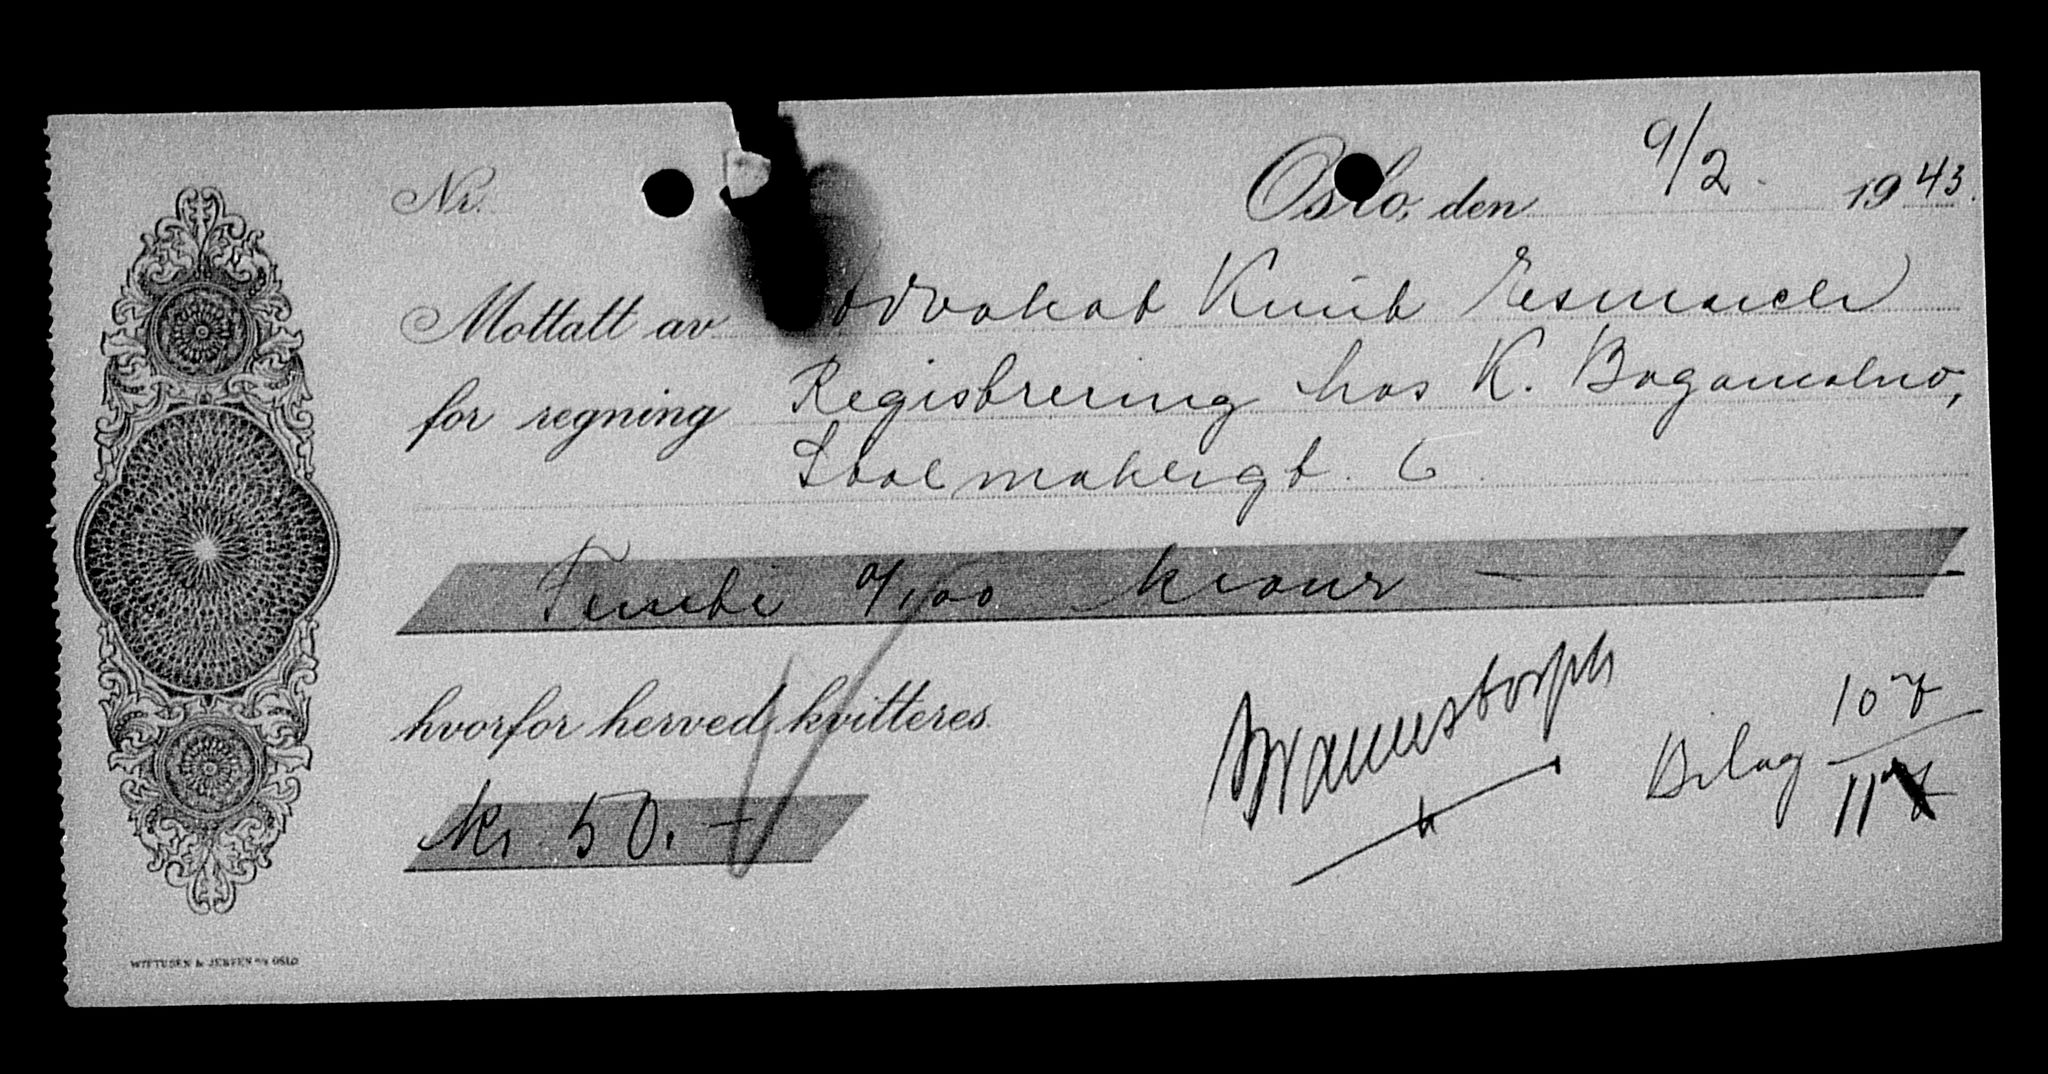 Nr.
Oslo, den 9/2 1943.
Mottatt av Advokat Knut Esmarch
for regning Registrering hos K. Bogomolno,
Stolmakergt. 6
Femti 0/00 kroner
hvorfor herved kvitteres.
kr. 50.-
Bilag 10
WITTUSEN & JENSEN A/S OSLO